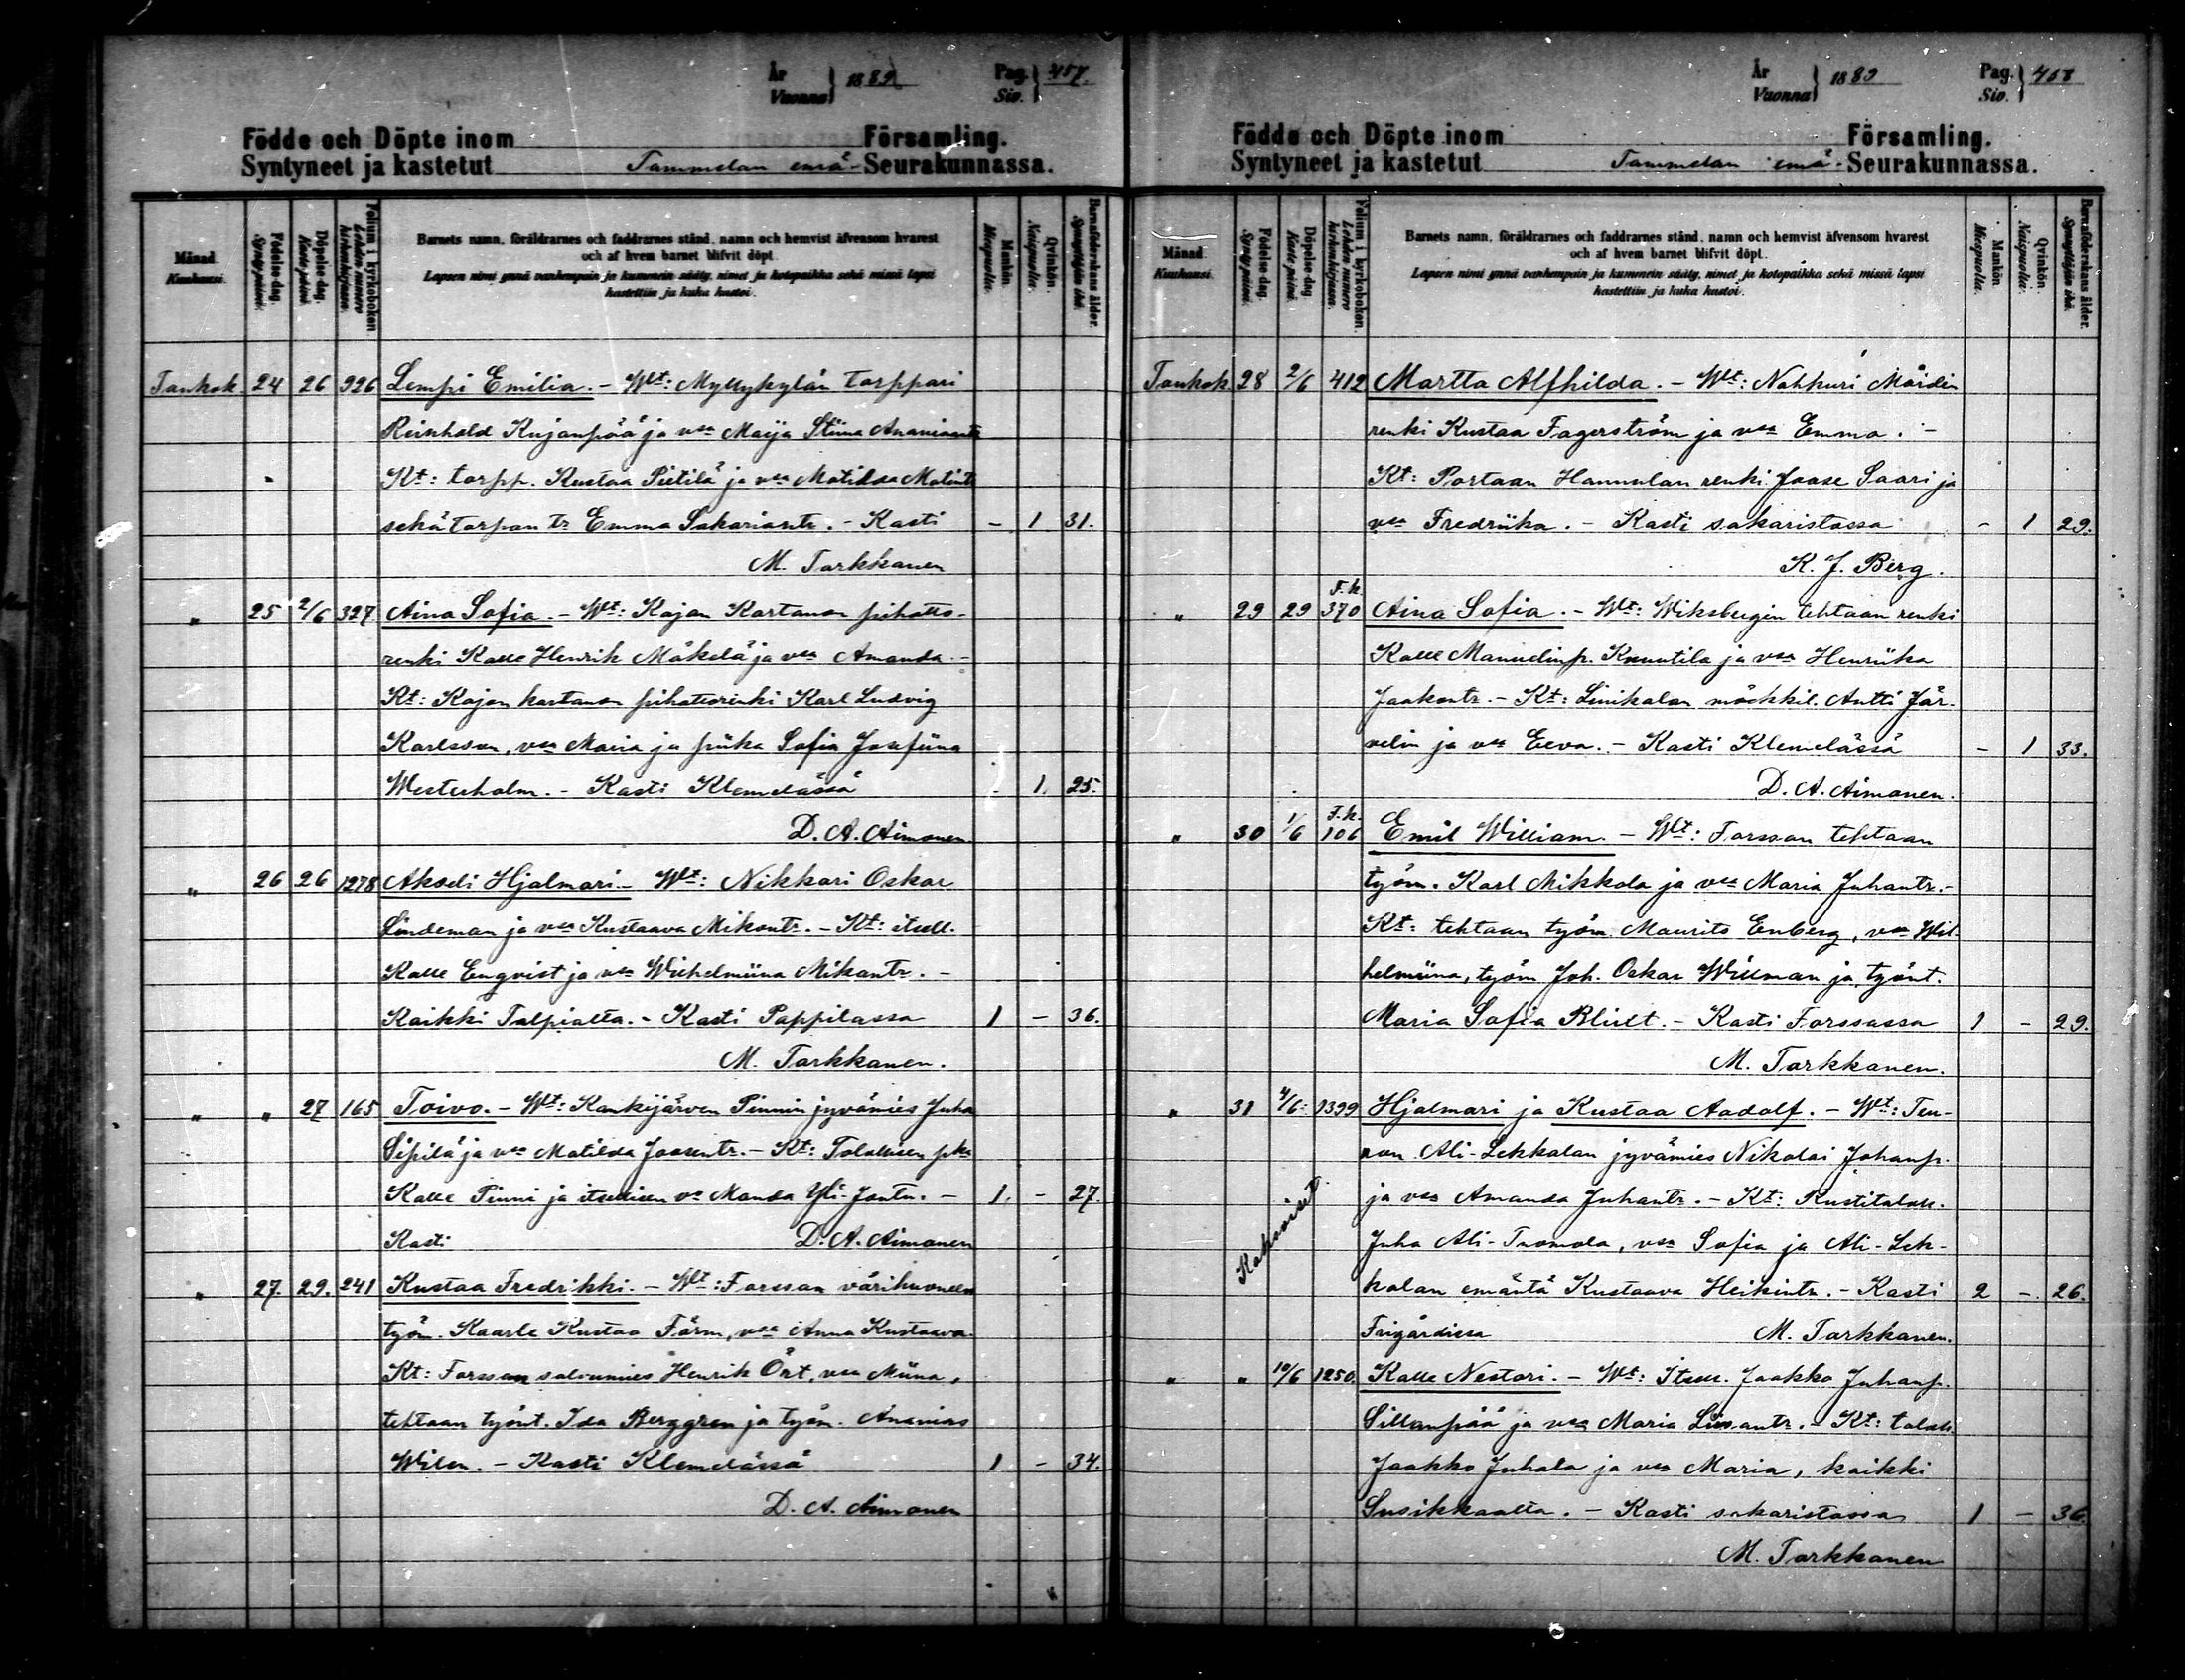 År
Vuonna } 1889
Pag.
Siv. } 457.
Födde och Döpte inom Församling.
Syntyneet ja kastetut Tammelan emä- Seurakunnassa.
Månad. Kuukausi.
Födelse-dag. Syntypäivä.
Döpelse-dag. Kaste-päivä.
Folium i kyrkoboken. Lehden numero kirkonkirjassa.
Barnets namn, föräldrarnes och faddrarnes stånd, namn och hemvist äfvensom hvarest
och af hvem barnet blifvit döpt.
Lapsen nimi ynnä vanhempain ja kummein sääty, nimet ja kotopaikka sekä missä lapsi
kastettiin ja kuka kastoi.
Mankön. Miespuolia.
Qvinkön. Naispuolia.
Barnaföderskans ålder. Synnyttäjän ikä.
Toukok. 24 26 926 Lempi Emilia. - Wt: Myllykylän torppari
Reinhold Kujanpää ja vaa Maija Stiina Ananiantr
Kt: torpp. Kustaa Pietilä ja vaa Matilda Matintr
sekä torpan tr Emma Sakariantr. - Kasti - 1 31.
M. Tarkkanen
" 25 2/6 327 Aina Sofia. - Wt: Kojon Kartanon pihatto-
renki Kalle Henrik Mäkelä ja vaa Amanda. -
Kt: Kojon kartanon pihattorenki Karl Ludvig
Karlsson, vaa Maria ja piika Sofia Josefiina
Westerholm. - Kasti Klemelässä - 1. 25.
D. A. Aimonen.
" 26 26 1278 Akseli Hjalmari. - Wt: Nikkari Oskar
Lindeman ja vaa Kustaava Mikontr. - Kt: itsell.
Kalle Enqvist ja vaa Wilhelmiina Mikontr. -
Kaikki Talpialta. - Kasti Pappilassa 1 - 36.
M. Tarkkanen.
" " 27 165 Toivo. - Wt: Kaukijärven Pinnin jyvämies Juha
Sipilä ja vaa Matilda Joosentr. - Kt: Talollisen pka
Kalle Pinni ja itsellisen va Manda Yli-Jontu. - 1. - 27.
Kasti D. A. Aimonen
" 27. 29. 241 Kustaa Fredrikki. - Wt: Forssan värihuoneen
työm. Kaarle Kustaa Färm, vaa Anna Kustaava.
Kt: Forssan salvumies Henrik Ört, vaa Miina,
tehtaan työnt. Ida Berggren ja työm. Ananias
Wilen. - Kasti Klemelässä 1 - 34.
D. A. Aimonen
År
Vuonna } 1889
Pag.
Siv. } 458
Födde och Döpte inom Församling.
Syntyneet ja kastetut Tammelan emä- Seurakunnassa.
Månad. Kuukausi.
Födelse-dag. Syntypäivä.
Döpelse-dag. Kaste-päivä.
Folium i kyrkoboken. Lehden numero kirkonkirjassa.
Barnets namn, föräldrarnes och faddrarnes stånd, namn och hemvist äfvensom hvarest
och af hvem barnet blifvit döpt.
Lapsen nimi ynnä vanhempain ja kummein sääty, nimet ja kotopaikka sekä missä lapsi
kastettiin ja kuka kastoi.
Mankön. Miespuolia.
Qvinkön. Naispuolia.
Barnaföderskans ålder. Synnyttäjän ikä.
Toukok. 28 2/6 412 Martta Alfhilda. - Wt: Nahkuri Mårdin
renki Kustaa Fagerström ja vaa Emma. -
Kt: Portaan Hannulan renki Joose Saari ja
vaa Fredriika. - Kasti sakaristossa - 1 29.
K. J. Berg.
" 29 29 F.k. 370 Aina Sofia. - Wt: Wiksbergin tehtaan renki
Kalle Manuelinp. Knuutila ja vaa Henriika
Jaakontr. - Kt: Linikalan mökkil. Antti Jär-
velin ja vaa Eeva. - Kasti Klemelässä - 1 33.
D. A. Aimonen.
" 30 1/6 F.k. 106 Emil William. - Wt: Forssan tehtaan
työm. Karl Mikkola ja vaa Maria Juhantr. -
Kt: tehtaan työm. Maurits Enberg, vaa Wil-
helmiina, työm Joh. Oskar Willman ja työnt.
Maria Sofia Blixt. - Kasti Forssassa 1 - 29.
M. Tarkkanen.
" 31 4/6 1399 Hjalmari ja Kustaa Aadolf. - Wt: Teu-
ron Ali-Lekkalan jyvämies Nikolai Johanp.
ja vaa Amanda Juhantr. - Kt: Rustitalol.
Juha Ali-Tuomola, vaa Sofia ja Ali-Lek-
Kaksoiset
kalan emäntä Kustaava Heikintr. - Kasti 2 - 26.
Frigårdissa M. Tarkkanen.
" " 10/6 1250. Kalle Nestori. - Wt: Itsell. Jaakko Juhanp.
Sillanpää ja vaa Maria Liisantr. - Kt: talol.
Jaakko Juhala ja vaa Maria, kaikki
Susikkaalta. - Kasti sakaristossa 1 - 36.
M. Tarkkanen